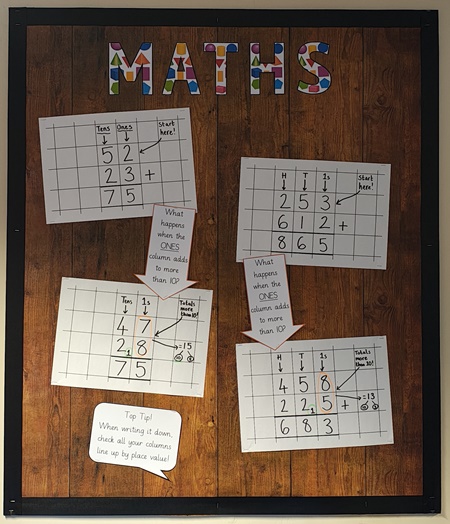 MATHS
Tens Ones Start here!
5 2
2 3 +
7 5
What
happens
when the
ONES
column adds
to more
than 10?
Tens 1s Totals more than 10!
4 7
2 1 8 =15
7 5
Top Tip!
When writing it down,
check all your columns
line up by place value!
H T 1s Start here!
2 5 3
6 1 2 +
8 6 5
What
happens
when the
ONES
column adds
to more
than 10?
H T 1s Totals more than 10!
4 5 8
2 2 1 5 + =13
6 8 3